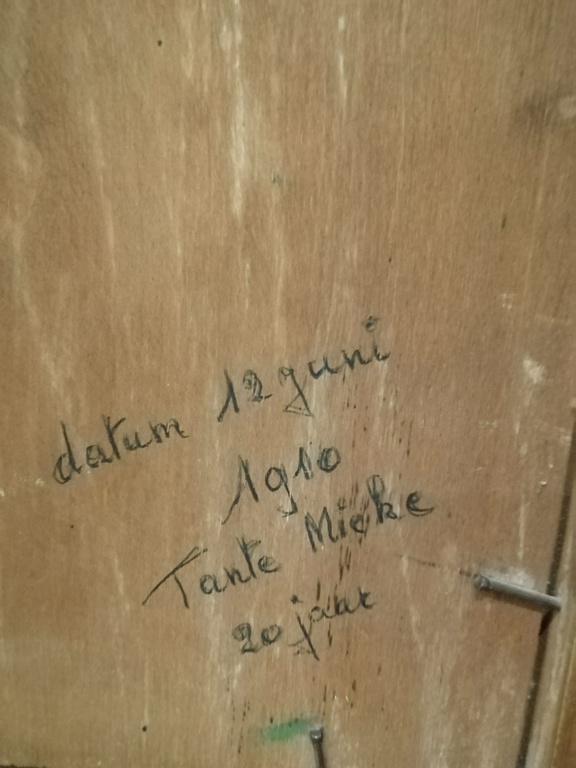 datum 12 juni
1910
Tante Mieke
20 jaar